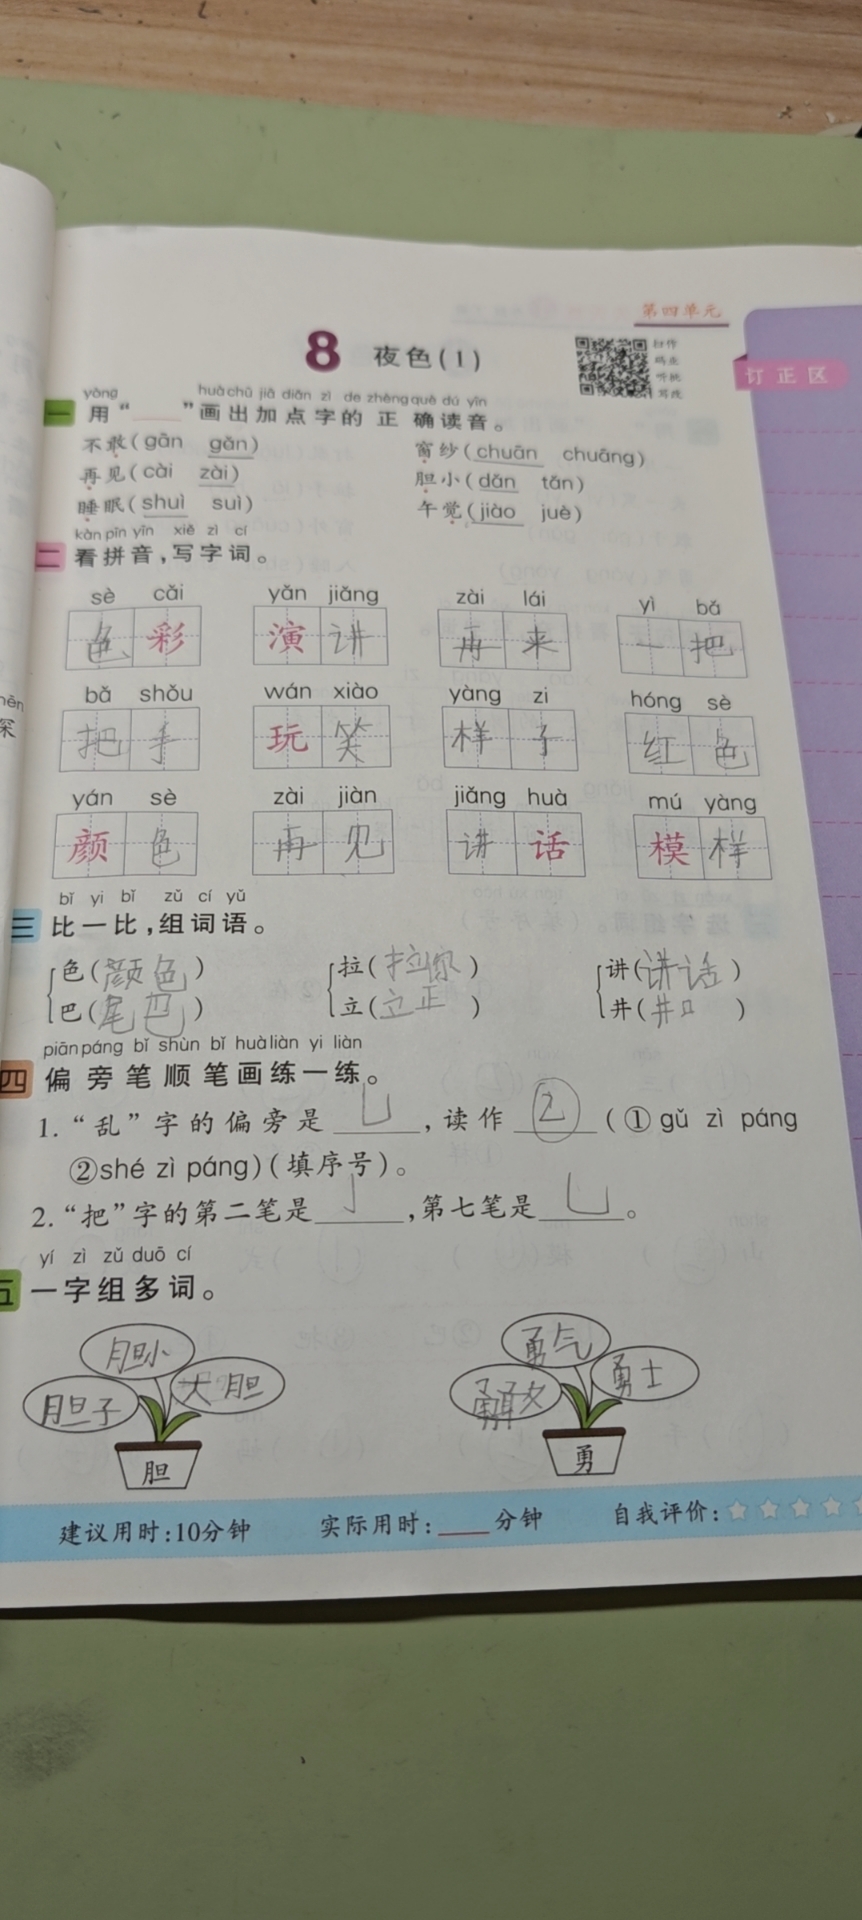 第四单元
8 夜色(1)
扫作
码业
听批
写改
订正区
yòng huà chū jiā diǎn zì de zhèng què dú yīn
一 用“____”画出加点字的正确读音。
不敢(gān gǎn) 窗纱(chuān chuāng)
再见(cài zài) 胆小(dǎn tǎn)
睡眠(shuì suì) 午觉(jiào juè)
kàn pīn yīn xiě zì cí
二 看拼音,写字词。
sè cǎi yǎn jiǎng zài lái yì bǎ
色彩 演讲 再来 一把
bǎ shǒu wán xiào yàng zi hóng sè
把手 玩笑 样子 红色
yán sè zài jiàn jiǎng huà mú yàng
颜色 再见 讲话 模样
bǐ yi bǐ zǔ cí yǔ
三 比一比,组词语。
色(颜色) 拉(拉你) 讲(讲话)
巴(尾巴) 立(立正) 井(井口)
piān páng bǐ shùn bǐ huà liàn yi liàn
四 偏旁笔顺笔画练一练。
1.“乱”字的偏旁是 乚 ,读作 ② (①gǔ zì páng
②shé zì páng)(填序号)。
2.“把”字的第二笔是 亅 ,第七笔是 乚 。
yí zì zǔ duō cí
五 一字组多词。
胆小 勇气
胆子 大胆 勇士
胆 勇
建议用时:10分钟 实际用时:____分钟 自我评价:
hēn
深